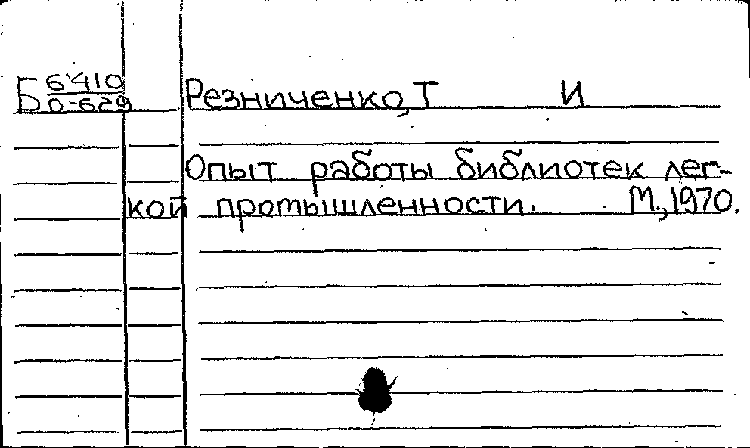 Б 6'410
О-629
Резниченко, Т И
Опыт работы библиотек лег-
кой промышленности. М., 1970.